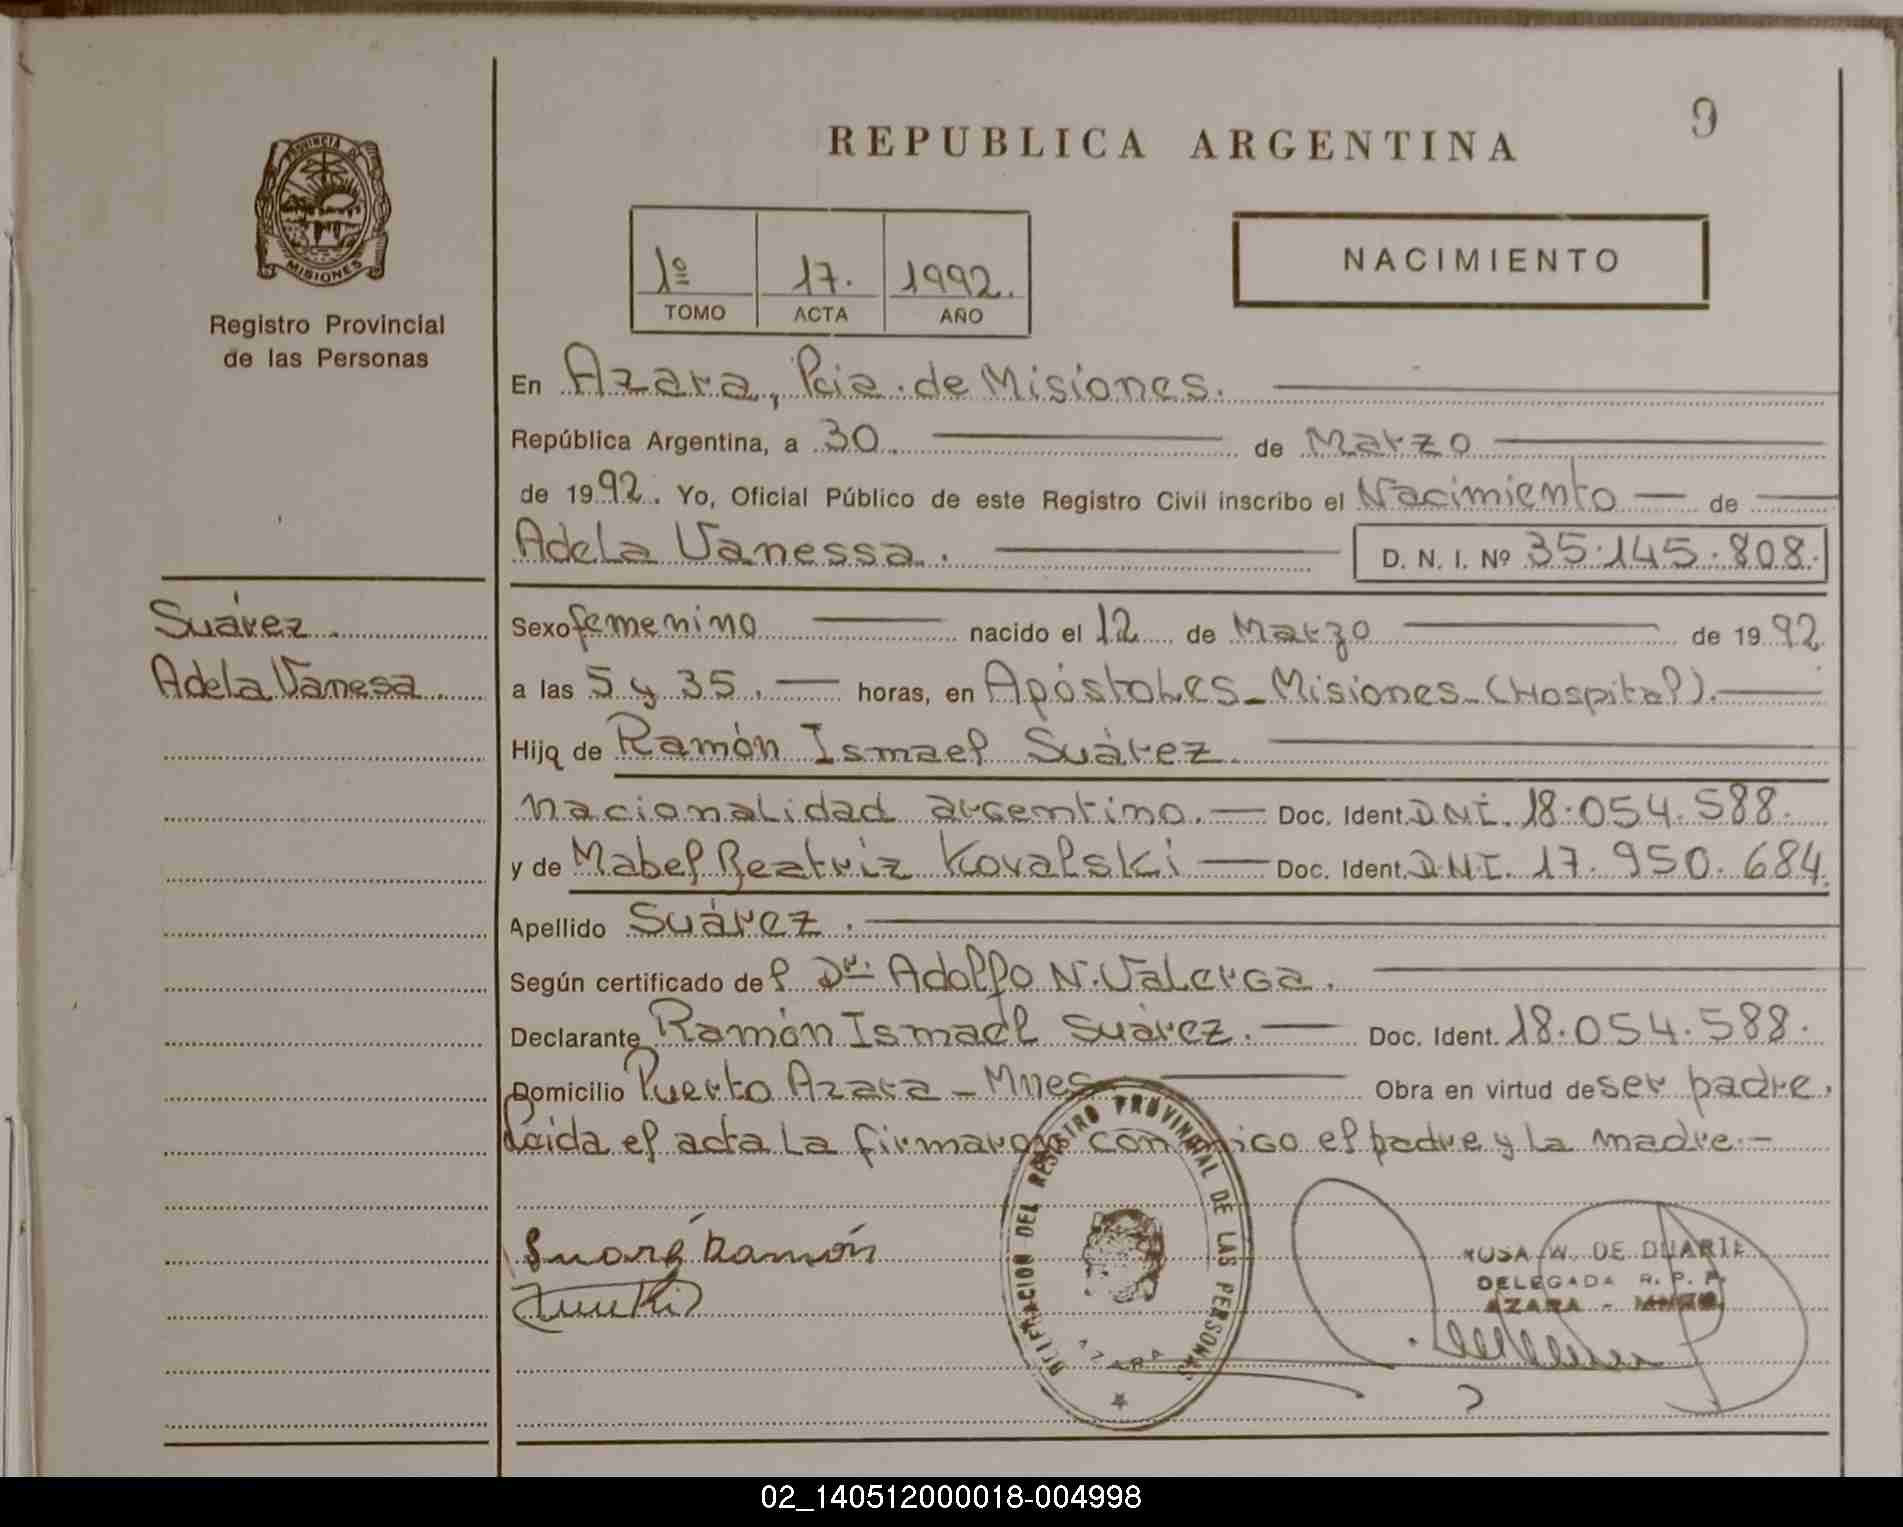 9
REPUBLICA ARGENTINA
PROVINCIA DE
MISIONES
Registro Provincial
de las Personas
1º 17. 1992.
TOMO ACTA AÑO
NACIMIENTO
En Azara, Pcia. de Misiones.
República Argentina, a 30 de Marzo
de 1992. Yo, Oficial Público de este Registro Civil inscribo el Nacimiento de
Adela Vanessa. D. N. I. Nº 35.145.808.
Suárez
Adela Vanesa
Sexo femenino nacido el 12 de Marzo de 1992
a las 5 y 35. horas, en Apóstoles - Misiones - (Hospital).
Hija de Ramón Ismael Suárez.
nacionalidad argentino. Doc. Ident. DNI. 18.054.588.
y de Mabel Beatriz Kovalski Doc. Ident. D.N.I. 17.950.684.
Apellido Suárez.
Según certificado del Dr. Adolfo N. Valerga.
Declarante Ramón Ismael Suárez. Doc. Ident. 18.054.588.
Domicilio Puerto Azara - Mnes Obra en virtud de ser padre.
Leida el acta la firmaron conmigo el padre y la madre.-
DELEGACION DEL REGISTRO PROVINCIAL DE LAS PERSONAS
AZARA
Ramón
ROSA W. DE DUARTE
DELEGADA R. P. P.
AZARA - MNES.
02_140512000018-004998